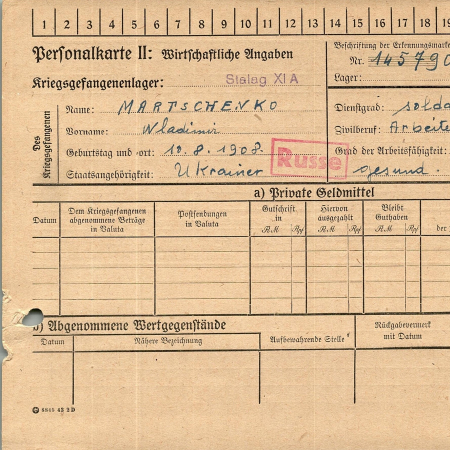 1 2 3 4 5 6 7 8 9 10 11 12 13 14 15 16 17 18 19
Personalkarte II: Wirtschaftliche Angaben
Beschriftung der Erkennungsmarke
Nr. 145790
Kriegsgefangenenlager: Stalag XI A
Lager:
Des Kriegsgefangenen
Name: MARTSCHENKO
Dienstgrad: Solda
Vorname: Wladimir
Zivilberuf: Arbeite
Geburtstag und -ort: 10.8.1908.
Grad der Arbeitsfähigkeit:
Staatsangehörigkeit: Ukrainer
Russe
gesund.
a) Private Geldmittel
Datum
Dem Kriegsgefangenen abgenommene Beträge in Valuta
Postsendungen in Valuta
Gutschrift in
RM Rpf
Hiervon ausgezahlt
RM Rpf
Bleibt Guthaben
RM Rpf
der
b) Abgenommene Wertgegenstände
Datum
Nähere Bezeichnung
Aufbewahrende Stelle
Rückgabevermerk mit Datum